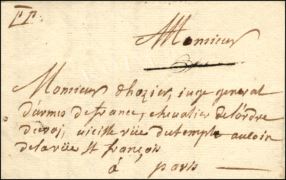 Monsieur
Monsieur d'hozier, iuge general
d'armes de france, chevalier de l'ordre
du roy, vieille rüe du temple au coin
de la rüe st françois
á paris